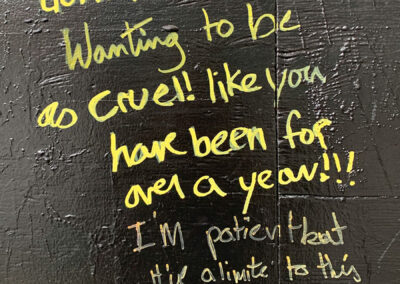 Wanting to be
as cruel! like you
have been for
over a year!!!
I'M patient but
it is a limite to this